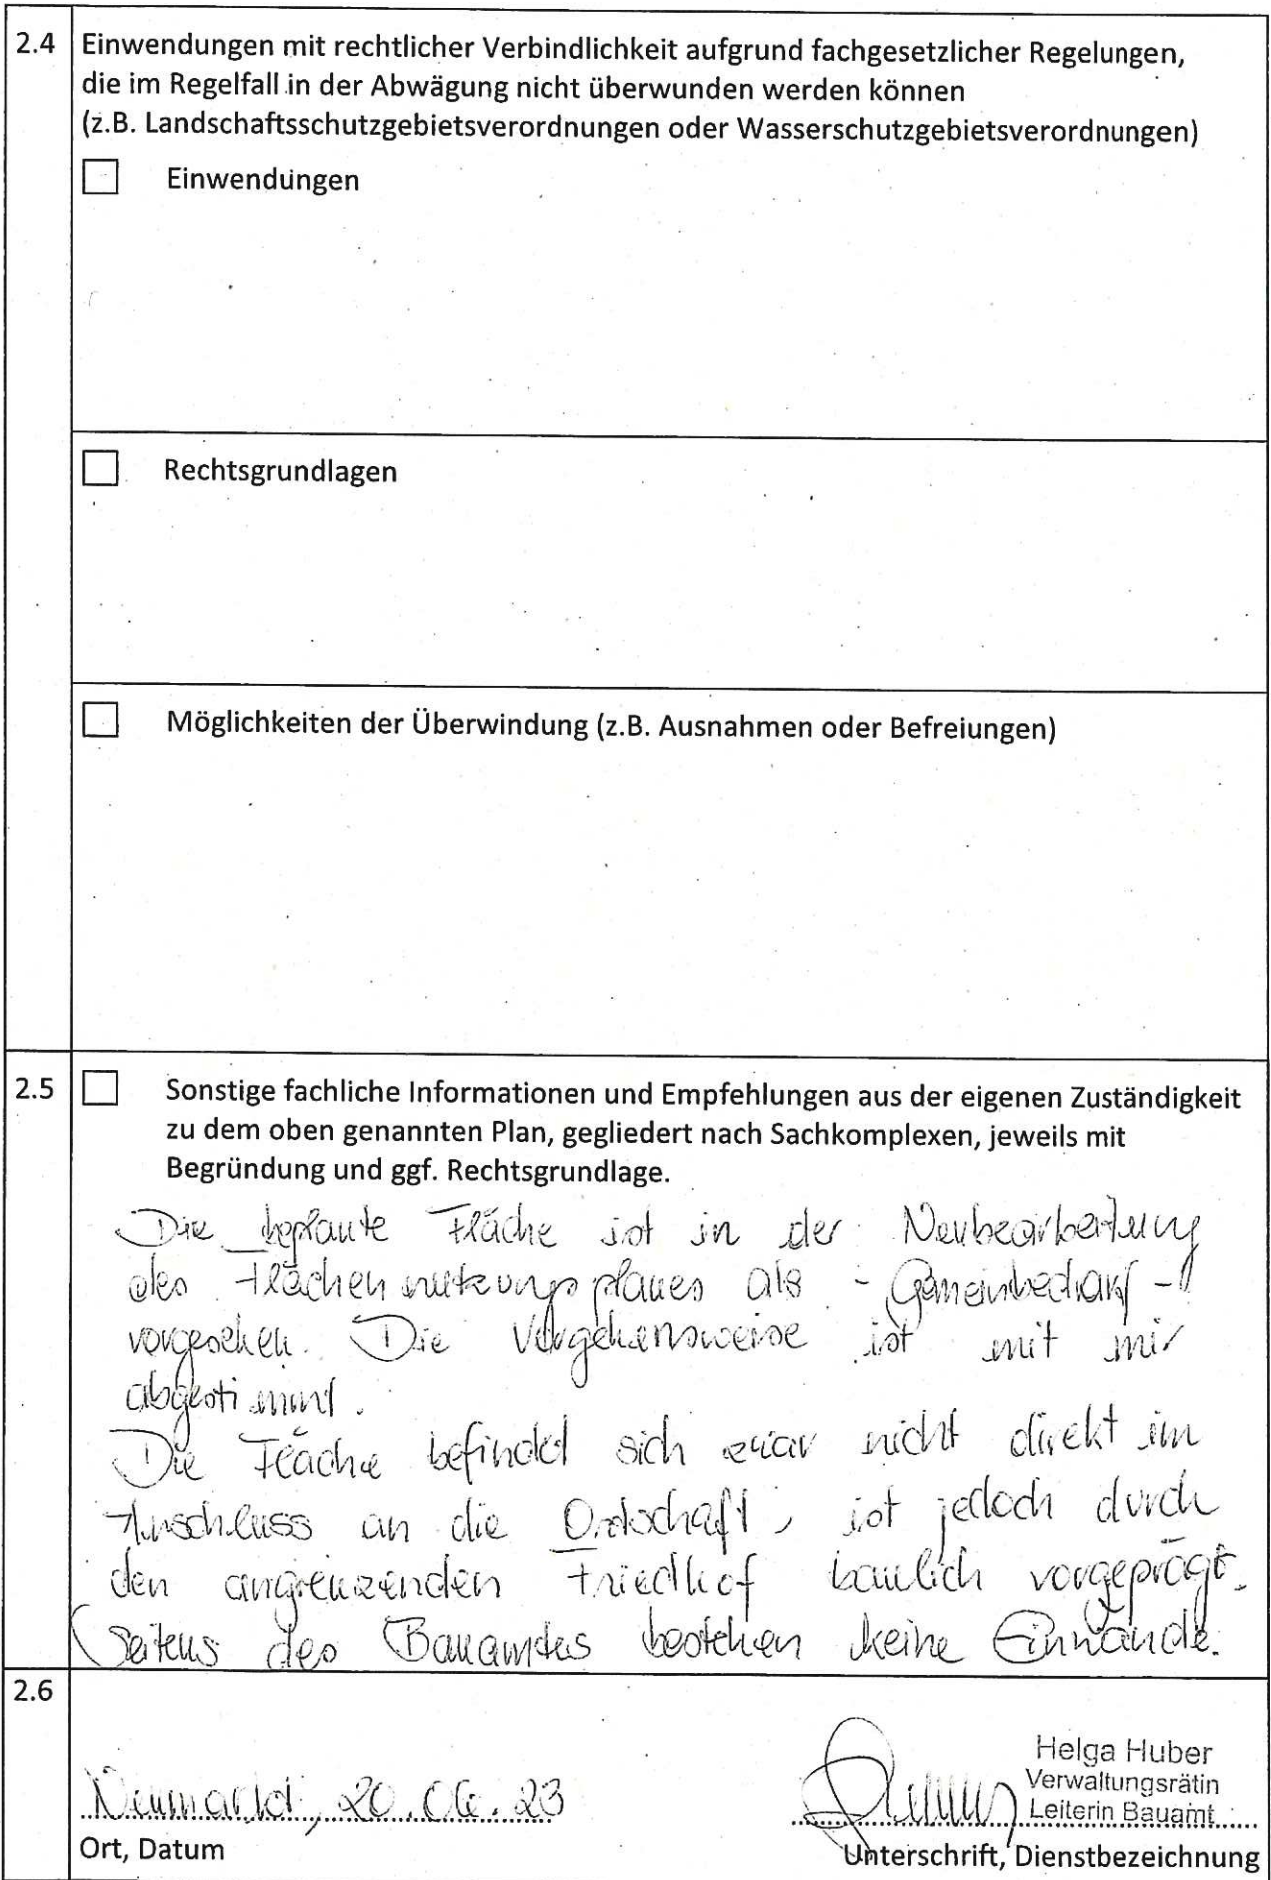 2.4 Einwendungen mit rechtlicher Verbindlichkeit aufgrund fachgesetzlicher Regelungen,
die im Regelfall in der Abwägung nicht überwunden werden können
(z.B. Landschaftsschutzgebietsverordnungen oder Wasserschutzgebietsverordnungen)
Einwendungen
Rechtsgrundlagen
Möglichkeiten der Überwindung (z.B. Ausnahmen oder Befreiungen)
2.5 Sonstige fachliche Informationen und Empfehlungen aus der eigenen Zuständigkeit
zu dem oben genannten Plan, gegliedert nach Sachkomplexen, jeweils mit
Begründung und ggf. Rechtsgrundlage.
Die beplante Fläche ist in der Neubearbeitung
des Flächennutzungsplanes als - Gemeinbedarf -
vorgesehen. Die Vorgehensweise ist mit mir
abgestimmt.
Die Fläche befindet sich zwar nicht direkt im
Anschluss an die Ortschaft, ist jedoch durch
den angrenzenden Friedhof baulich vorgeprägt.
Seitens des Bauamtes bestehen keine Einwände.
2.6
Helga Huber
Verwaltungsrätin
Neumarkt, 20.06.23 Leiterin Bauamt
Ort, Datum Unterschrift, Dienstbezeichnung